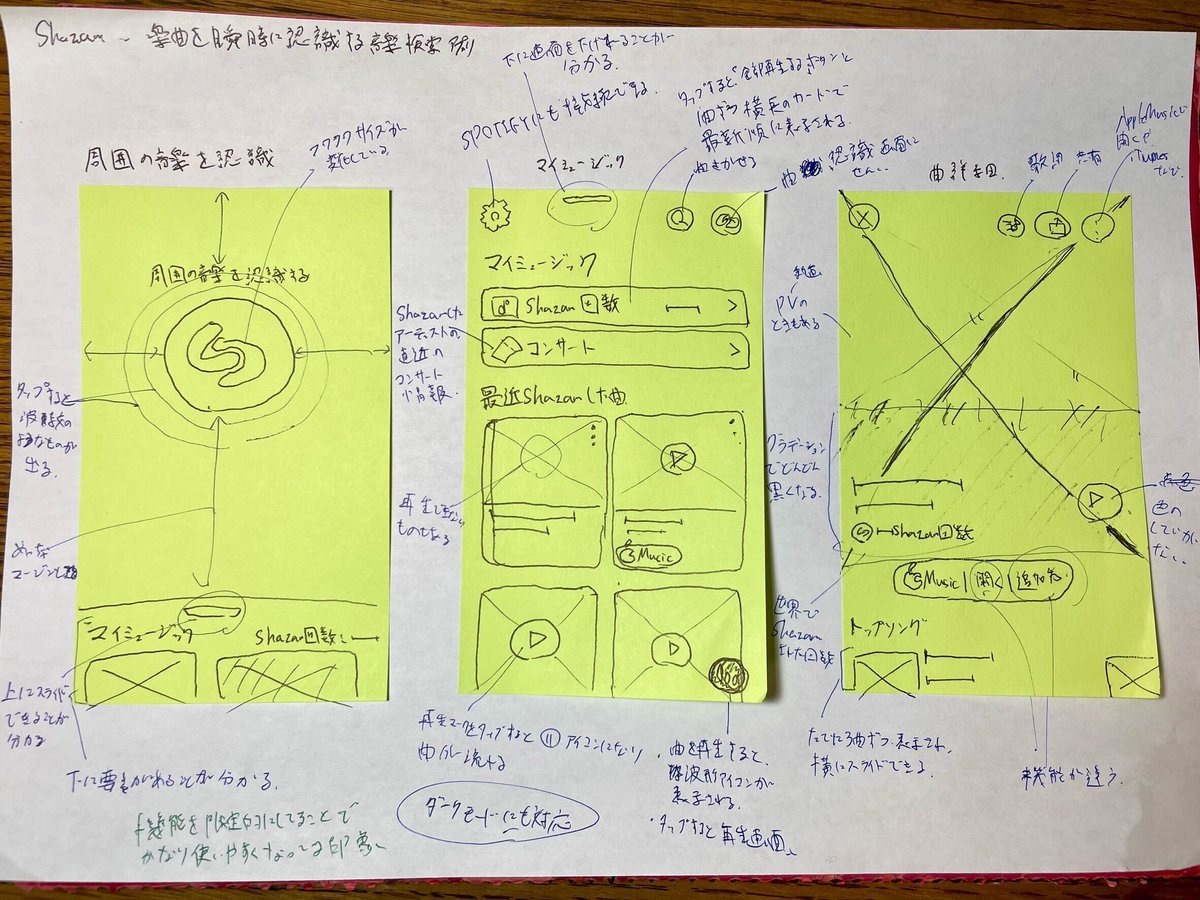 Shazam ~ 楽曲を瞬時に認識する音楽検索
周囲の音楽を認識
周囲の音楽を認識する
タップすると
波紋の
ようなものが
出る。
マイミュージック
Shazam回数
上にスライド
できることが
分かる
下に要素があることが分かる。
機能を限定的にしてることで
かなり使いやすくなってる印象
下に画面を下げれることが
分かる。
SPOTIFYにも接続できる。
タップすると"全部再生する"ボタンと
曲が 横長のカードで
最近順に表示される。
マイミュージック
曲 認識画面に
マイミュージック
Shazam回数
コンサート
Shazamした
アーティストの
直近の
コンサート
情報。
最近Shazamした曲
再生しない
ものもある
Music
再生マークをタップすると アイコンになり
曲が流れる
ダークモードにも対応
・曲を再生すると、
波形アイコンが
表示される。
・タップすると再生画面へ
曲詳細
歌詞
共有
Apple Musicで
開く
iTunes
など
PVの
ときもある
グラデーション
でどんどん
黒くなる。
色の
Shazam回数
世界で
Shazam
された回数
Music
開く
追加先
トップソング
たてに3曲ずつ表示され、
横にスライドできる。
機能が違う